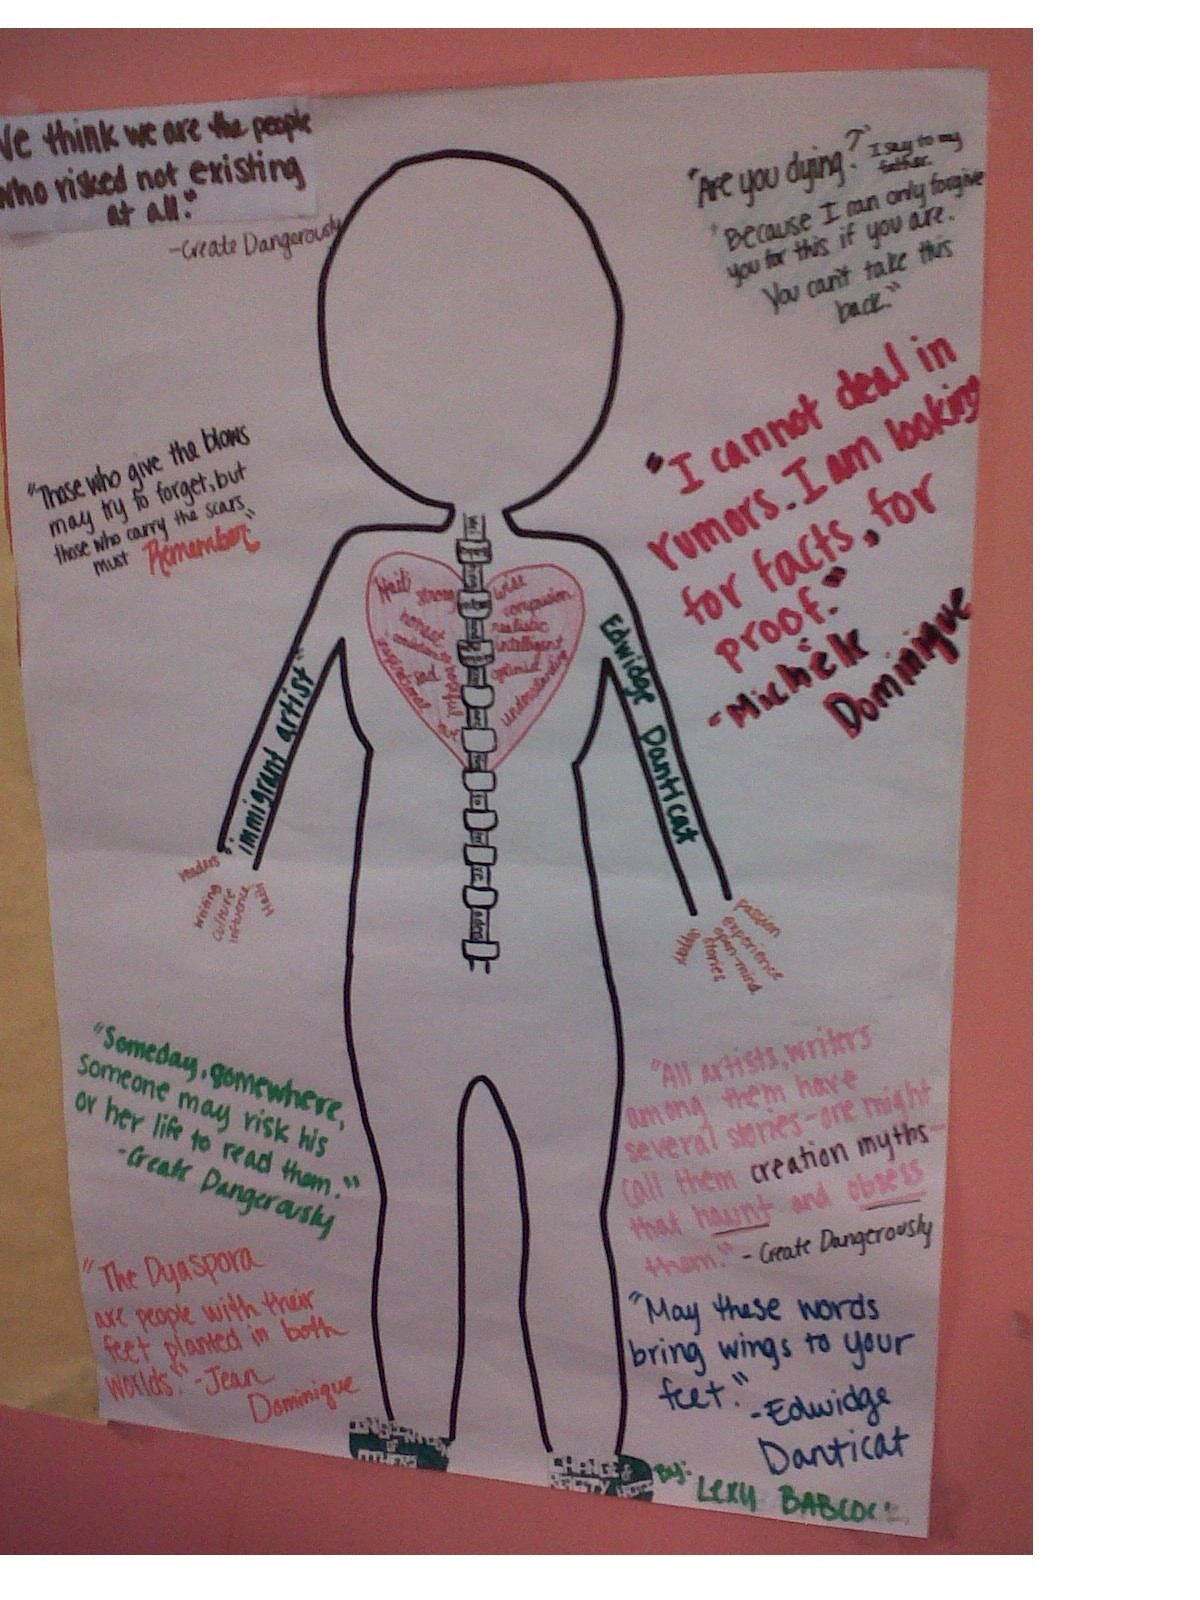 We think we are the people
who risked not existing
at all."
-Create Dangerously
"Are you dying?" I say to my
father.
"Because I can only forgive
you for this if you are.
You can't take this
back."
"I cannot deal in
rumors. I am looking
for facts, for
proof."
-Michèle
Dominique
"Those who give the blows
may try to forget, but
those who carry the scars
must Remember."
Haiti
strong
honest
sad
hopeful
inspirational
wise
compassion
realistic
intelligent
optimist
understanding
"immigrant artist"
Edwidge Danticat
readers
writing
culture
influence
Haiti
passion
experience
open-mind
stories
"Someday, somewhere,
someone may risk his
or her life to read them."
-Create Dangerously
"All artists, writers
among them have
several stories-one might
call them creation myths-
that haunt and obsess
them." - Create Dangerously
"The Dyaspora
are people with their
feet planted in both
worlds." -Jean
Dominique
"May these words
bring wings to your
feet."
-Edwidge
Danticat
CHANGE
By:
Lexy BABCOC